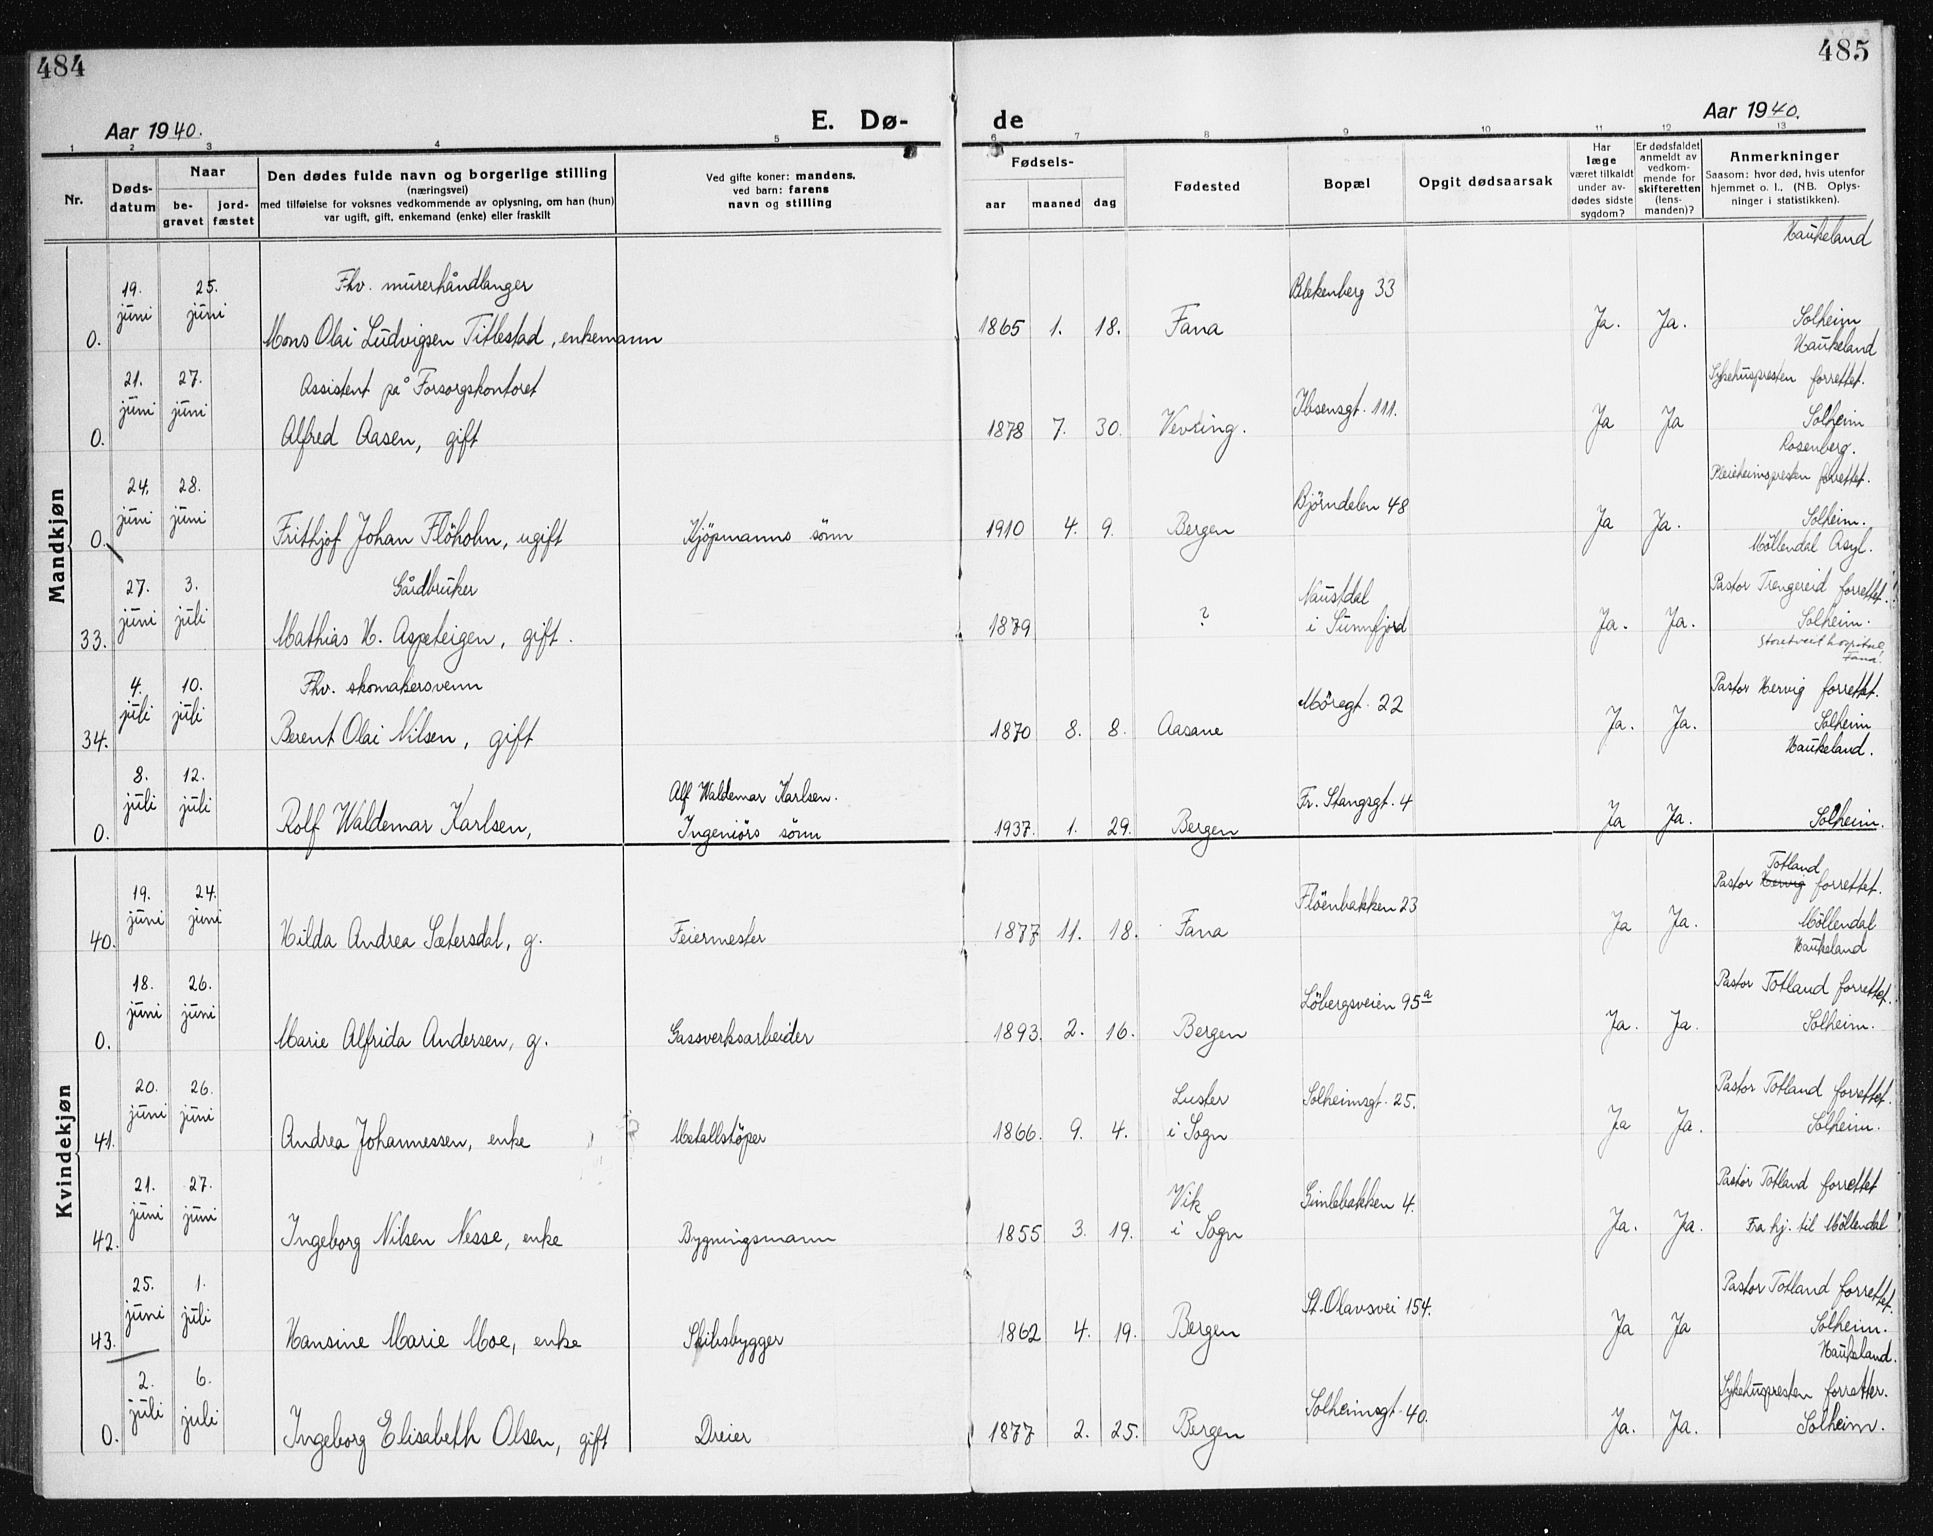 484
485
Aar 1940.
E. Dø-
de
Aar 1940.
1 2 3 4 5 6 7 8 9 10 11 12 13
Nr.
Døds-
datum
Naar
be-
gravet
jord-
fæstet
Den dødes fulde navn og borgerlige stilling
(næringsvei)
med tilføielse for voksnes vedkommende av oplysning, om han (hun)
var ugift, gift, enkemand (enke) eller fraskilt
Ved gifte koner: mandens,
ved barn: farens
navn og stilling
Fødsels-
aar maaned dag
Fødested
Bopæl
Opgit dødsaarsak
Har
læge
været tilkaldt
under av-
dødes sidste
sygdom?
Er dødsfaldet
anmeldt av
vedkom-
mende for
skifteretten
(lens-
manden)?
Anmerkninger
Saasom: hvor død, hvis utenfor
hjemmet o. l., (NB. Oplys-
ninger i statistikken).
Mandkjøn
Haukeland
19. juni 25. juni Fhv. murerhåndlanger Blekenberg 33
0. Mons Olai Ludvigsen Titlestad, enkemann 1865 1. 18. Fana Ja. Ja. Solheim
Haukeland
21. juni 27. juni Assistent på Forsorgskontoret Ibsensgt. 111. Sykehuspresten forrettet.
0. Alfred Aasen, gift 1878 7. 30. Vevring. Ja Ja Solheim
Rosenberg.
24. juni 28. juni Björndalen 48 Pleieheimspresten forrettet.
0. Frithjof Johan Flöholm, ugift Kjöpmanns sönn 1910 4. 9. Bergen Ja Ja. Solheim.
Möllendal Asyl.
27. juni 3. juli Gårdbruker Naustdal Pastor Trengereid forrettet.
33. Mathias H. Aspeteigen, gift. 1879 ? i Sunnfjord Ja. Ja. Solheim.
Storetveit hospital,
Fana.
4. juli 10. juli Fhv. skomakersvenn Möregt. 22 Pastor Hervig forrettet.
34. Berent Olai Nilsen, gift 1870 8. 8. Aasane Ja. Ja. Solheim
Haukeland.
8. juli 12. juli Alf Waldemar Karlsen. Fr. Stangsgt. 4
0. Rolf Waldemar Karlsen, Ingeniörs sönn 1937. 1. 29. Bergen Ja Ja. Solheim.
Kvindekjøn
Totland
19. juni 24. juni Flöenbakken 23 Pastor Hervig forrettet.
40. Hilda Andrea Sætersdal, g. Feiermester 1877 11. 18. Fana Ja Ja. Möllendal
Haukeland
18. juni 26. juni Löbergsveien 95a Pastor Totland forrettet.
0. Marie Alfrida Andersen, g. Gassverksarbeider 1893. 2. 16. Bergen Ja. Ja. Solheim.
20. juni 26. juni Luster Solheimsgt. 25. Pastor Totland forrettet.
41. Andrea Johannessen, enke Metallstöper 1866. 9. 4. i Sogn Ja Ja. Solheim.
21. juni 27. juni Vik Gimlebakken 4. Pastor Totland forrettet
42. Ingeborg Nilsen Nesse, enke Bygningsmann 1855 3. 19. i Sogn Ja. Ja. Fra hj. til Möllendal
25. juni 1. juli St. Olavsvei 154. Pastor Totland forrettet.
43. Hansine Marie Moe, enke Skibsbygger 1862 4. 19. Bergen Ja Ja Solheim.
Haukeland.
2. juli 6. juli Solheimsgt. 40. Sykehuspresten forretter.
0. Ingeborg Elisabeth Olsen, gift Dreier 1877 2. 25. Bergen Ja. Ja. Solheim.